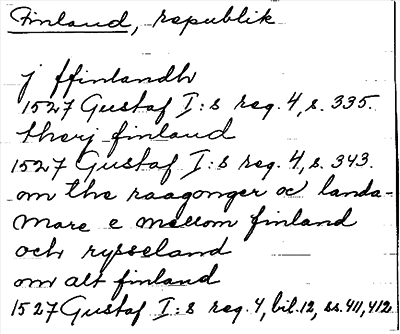 Finland, republik
j ffinlandh
1527 Gustaf I:s reg. 4, s. 335.
therj finland
1527 Gustaf I:s reg. 4, s. 343.
om the raagonger oc landa-
mare e mellom finland
och rysseland
om alt finland
1527 Gustaf I:s reg. 4, bil. 12, ss. 411, 412